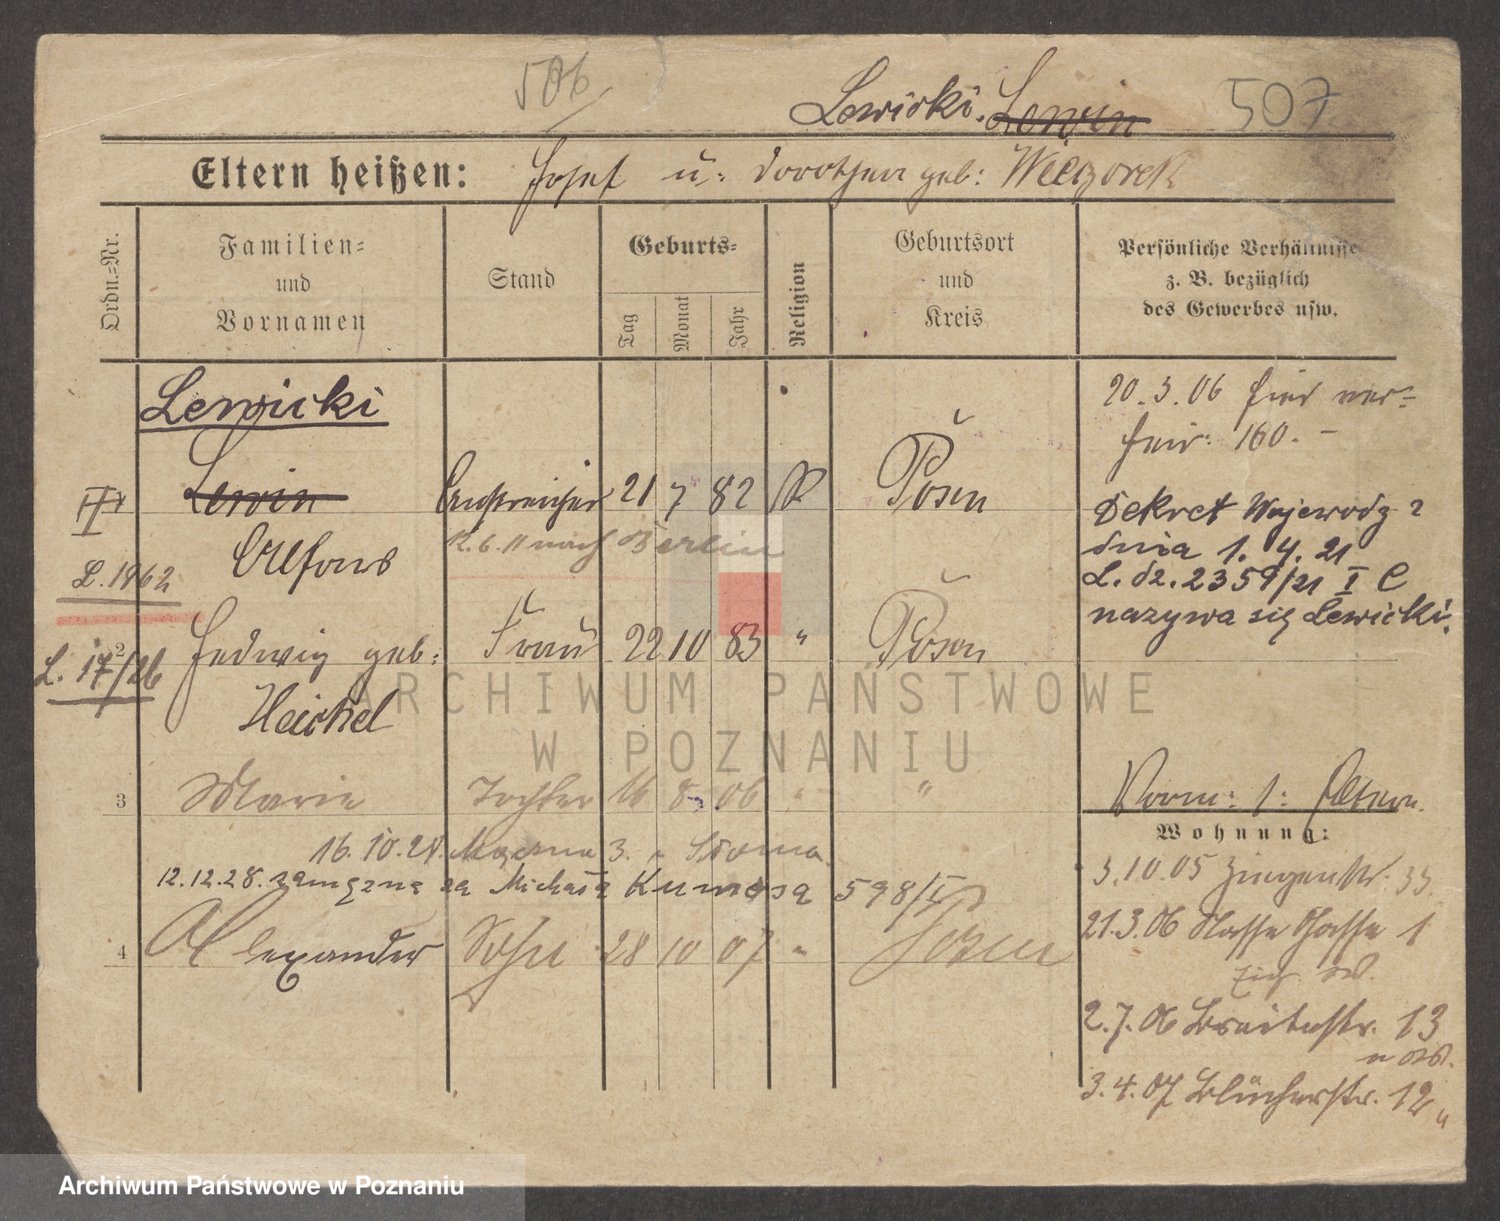 506
Lewicki. Lewin 507
Eltern heißen: Josef u: Dorothea geb: Wieczorek
Ordn.=Nr.
Familien=
und
Vornamen
Stand
Geburts=
Tag
Monat
Jahr
Religion
Geburtsort
und
Kreis
Persönliche Verhältnisse
z. B. bezüglich
des Gewerbes usw.
Lewicki
Lewin Anstreicher 21 7 82 K Posen
Alfons
12.6.11 nach Berlin
L. 1962
2 Hedwig geb: Frau 22 10 83 " Posen
Heickel
L. 17/26
3 Marie Tochter 16 8 06 " "
16.10.28 3.
12.12.28. zamężna za Michała 598/
4 Alexander Sohn 28 10 07 " Posen
20.3.06 hier ver=
heir: 160. –
Dekret Wojewodz
dnia 1. 4. 21
L. dz. 2359/21 I C
nazywa się Lewicki.
Vorm: 1: Eltern.
Wohnung:
3.10.05 33.
21.3.06 Nasse Gasse 1
2.7.06 Breitestr. 13
3.4.07 Blücherstr. 12 "
ARCHIWUM PAŃSTWOWE
W POZNANIU
Archiwum Państwowe w Poznaniu